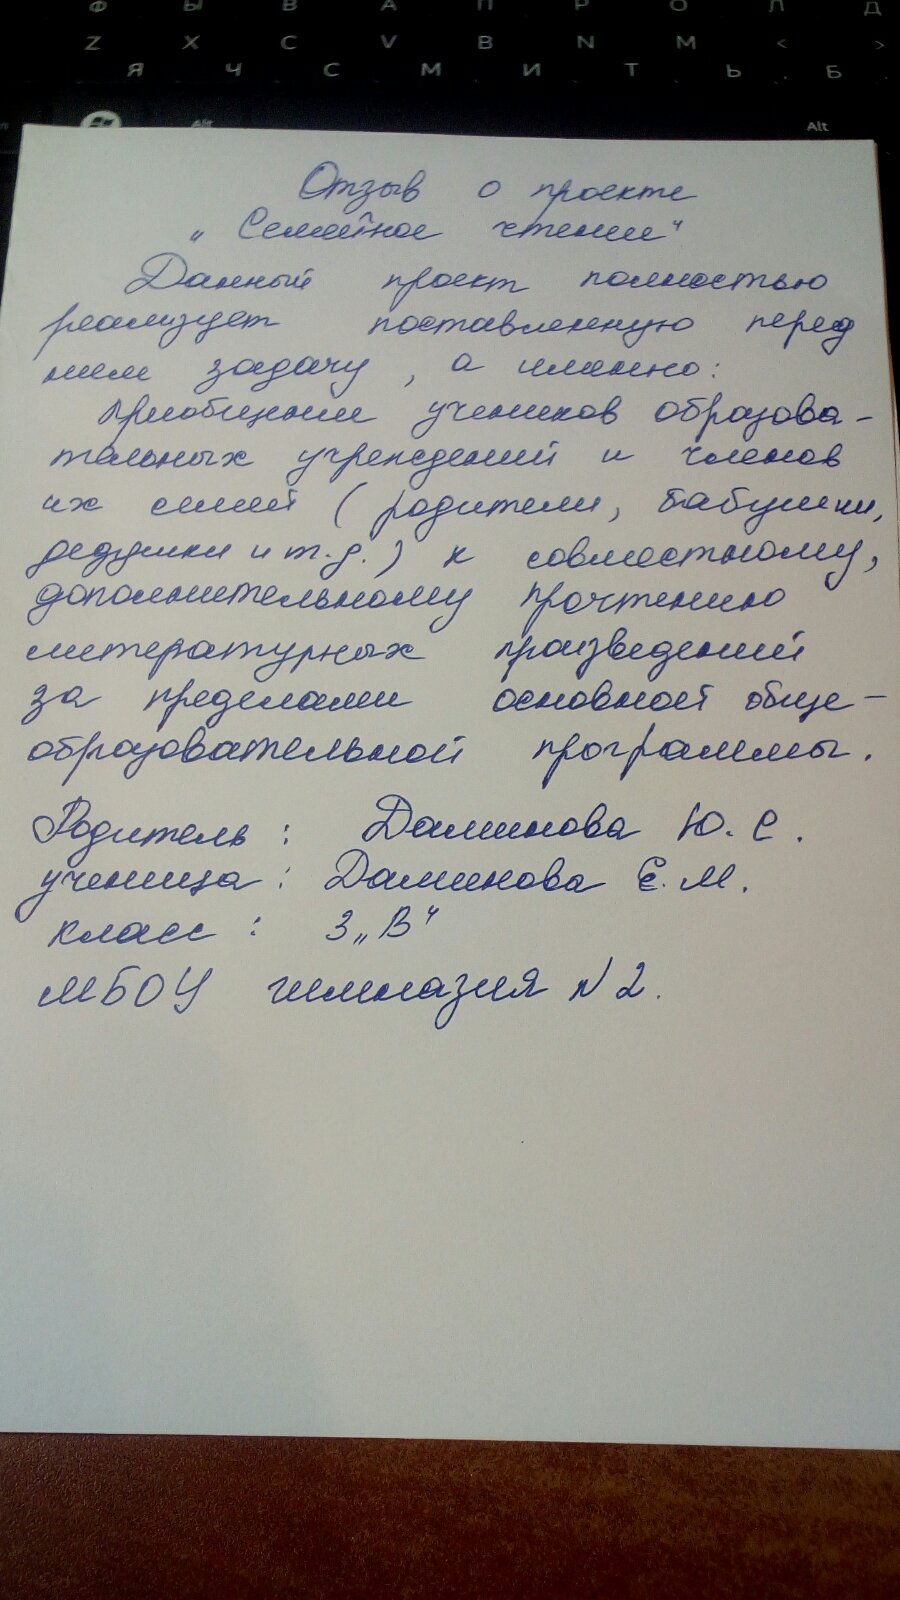 Ф Ы В А П Р О Л Д
Z X C V B N M < >
Я Ч С М И Т Ь Б
Alt Alt
Отзыв о проекте
„Семейное чтение“
Данный проект полностью
реализует поставленную перед
ним задачу, а именно:
приобщение учеников образова-
тельных учреждений и членов
их семей (родители, бабушки,
дедушки и т.д.) к совместному,
дополнительному прочтению
литературных произведений
за пределами основной обще-
образовательной программы.
Родитель: Даминова Ю. С.
ученица: Даминова Е. М.
класс: 3 „В“
МБОУ гимназия N 2.